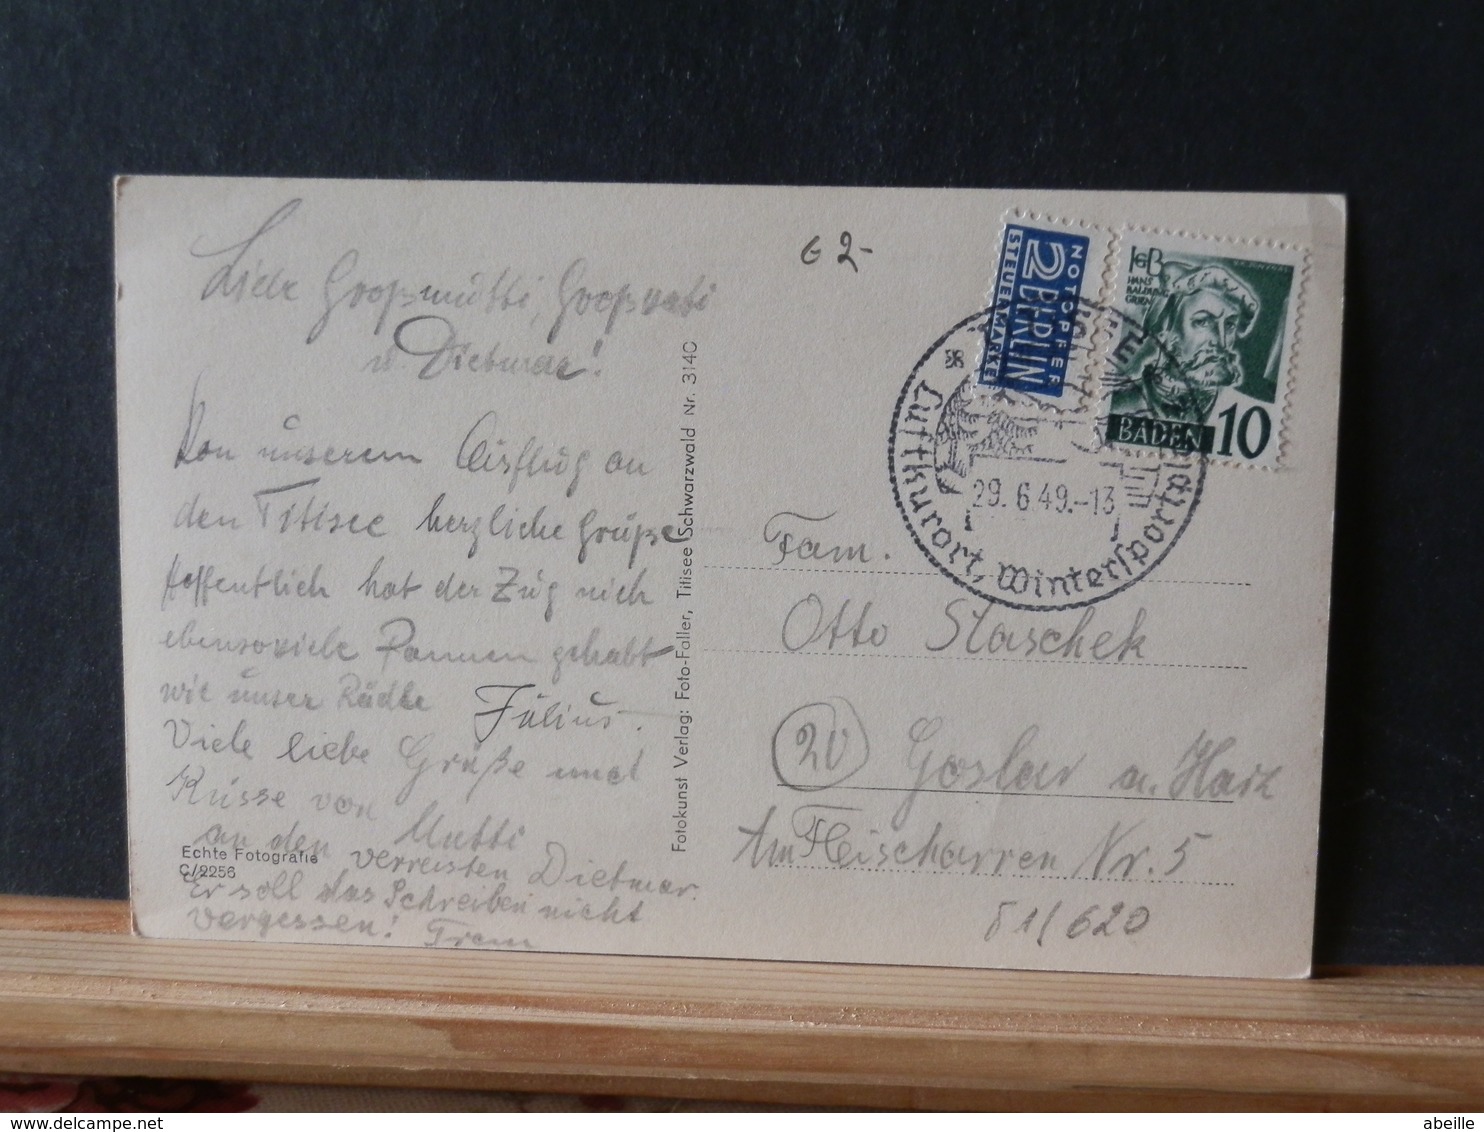 Liebe Großmutti, Großvati
u Dietmar!
Von unserem Ausflug an
den Titisee herzliche Grüße
Hoffentlich hat der Zug nich
ebensoviele Pannen gehabt
wie unser Rädle Julius.
Viele liebe Grüße und
Küsse von Mutti
an den verreisten Dietmar.
Er soll das Schreiben nicht
vergessen!
Echte Fotografie
C/2256
Fotokunst Verlag: Foto-Faller, Titisee Schwarzwald Nr. 314C
G 2-
NOTOPFER
2 BERLIN
STEUERMARKE
HGB
HANS
BALDUNG
GRIEN
BADEN 10
TITISEE
29.6.49.-13
Luftkurort, Wintersportplatz
Fam.
Otto Staschek
20 Goslar a. Harz
Am Fleischarren Nr. 5
81/620
abeille